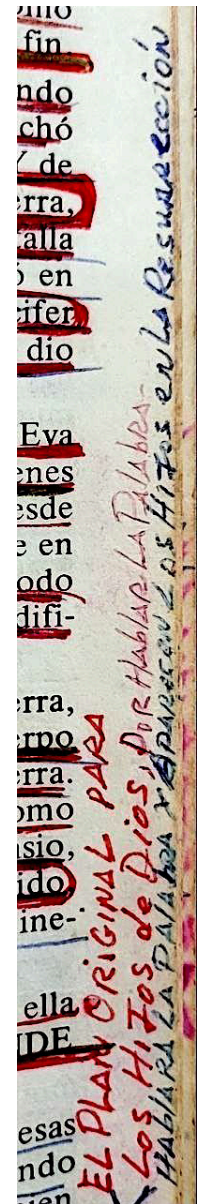 fin.
ndo
chó
Y de
erra,
talla
ó en
cifer
dio
Eva
enes
esde
e en
odo
difi-
erra,
erpo
erra.
omo
asio,
ido,
ine-
ella
IDE
esas
ndo
EL PLAN ORIGINAL PARA
LOS HIJOS de Dios, POR HABLAR LA PALABRA-
HABLARA LA PALABRA Y APARECEN LOS HIJOS en LA Resurrección